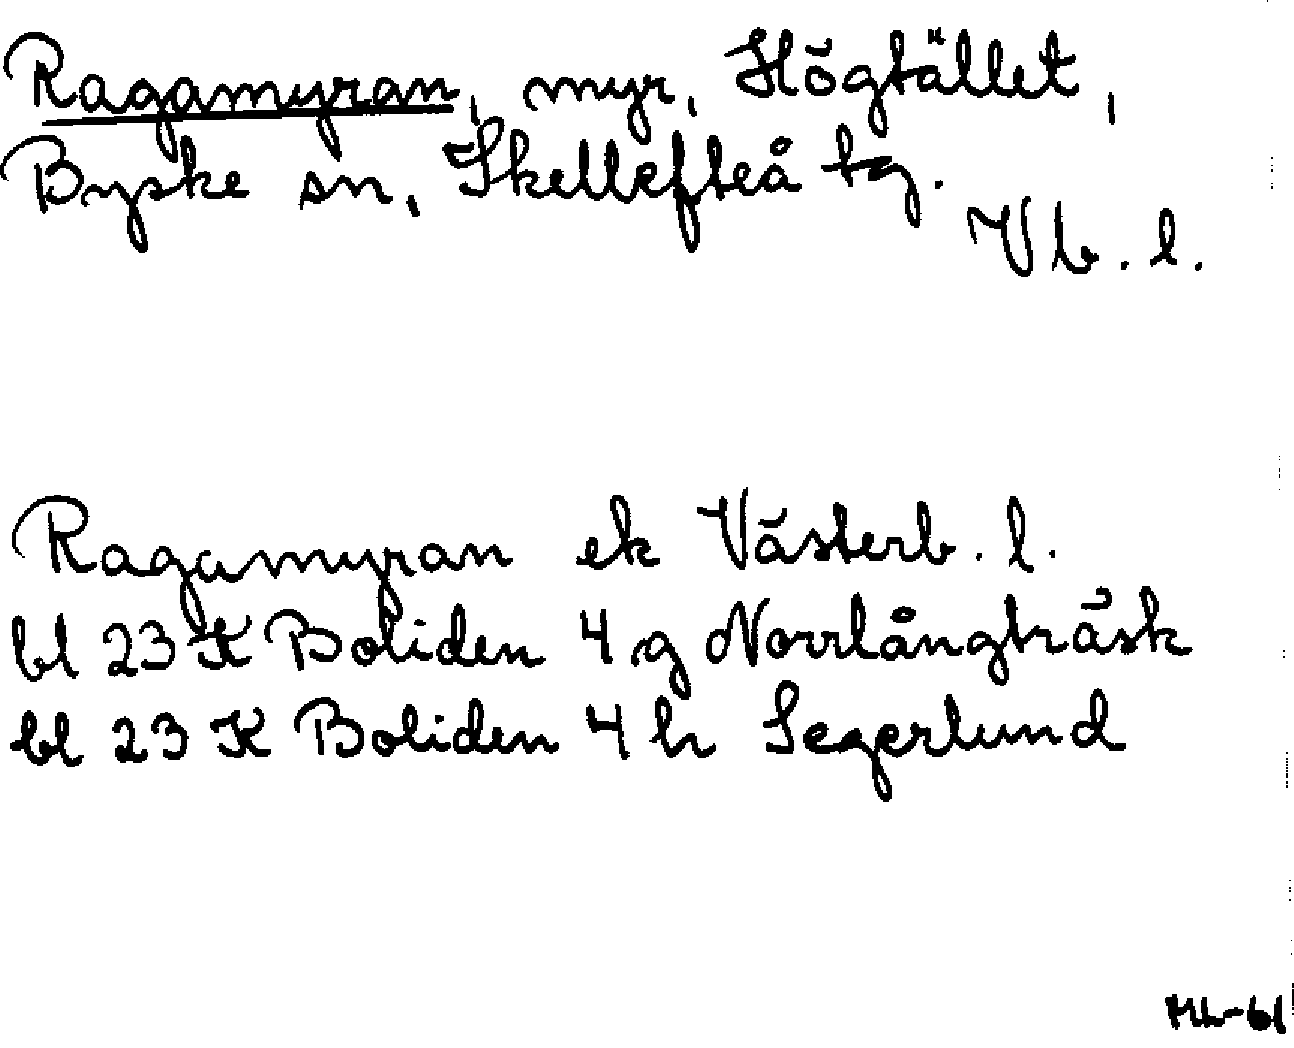 Ragamyran, myr, Högtället,
Byske sn, Skellefteå tg.
Vb. l.
Ragamyran ek Västerb. l.
bl 23 K Boliden 4 g Norrlångträsk
bl 23 K Boliden 4 h Segerlund
ML-61